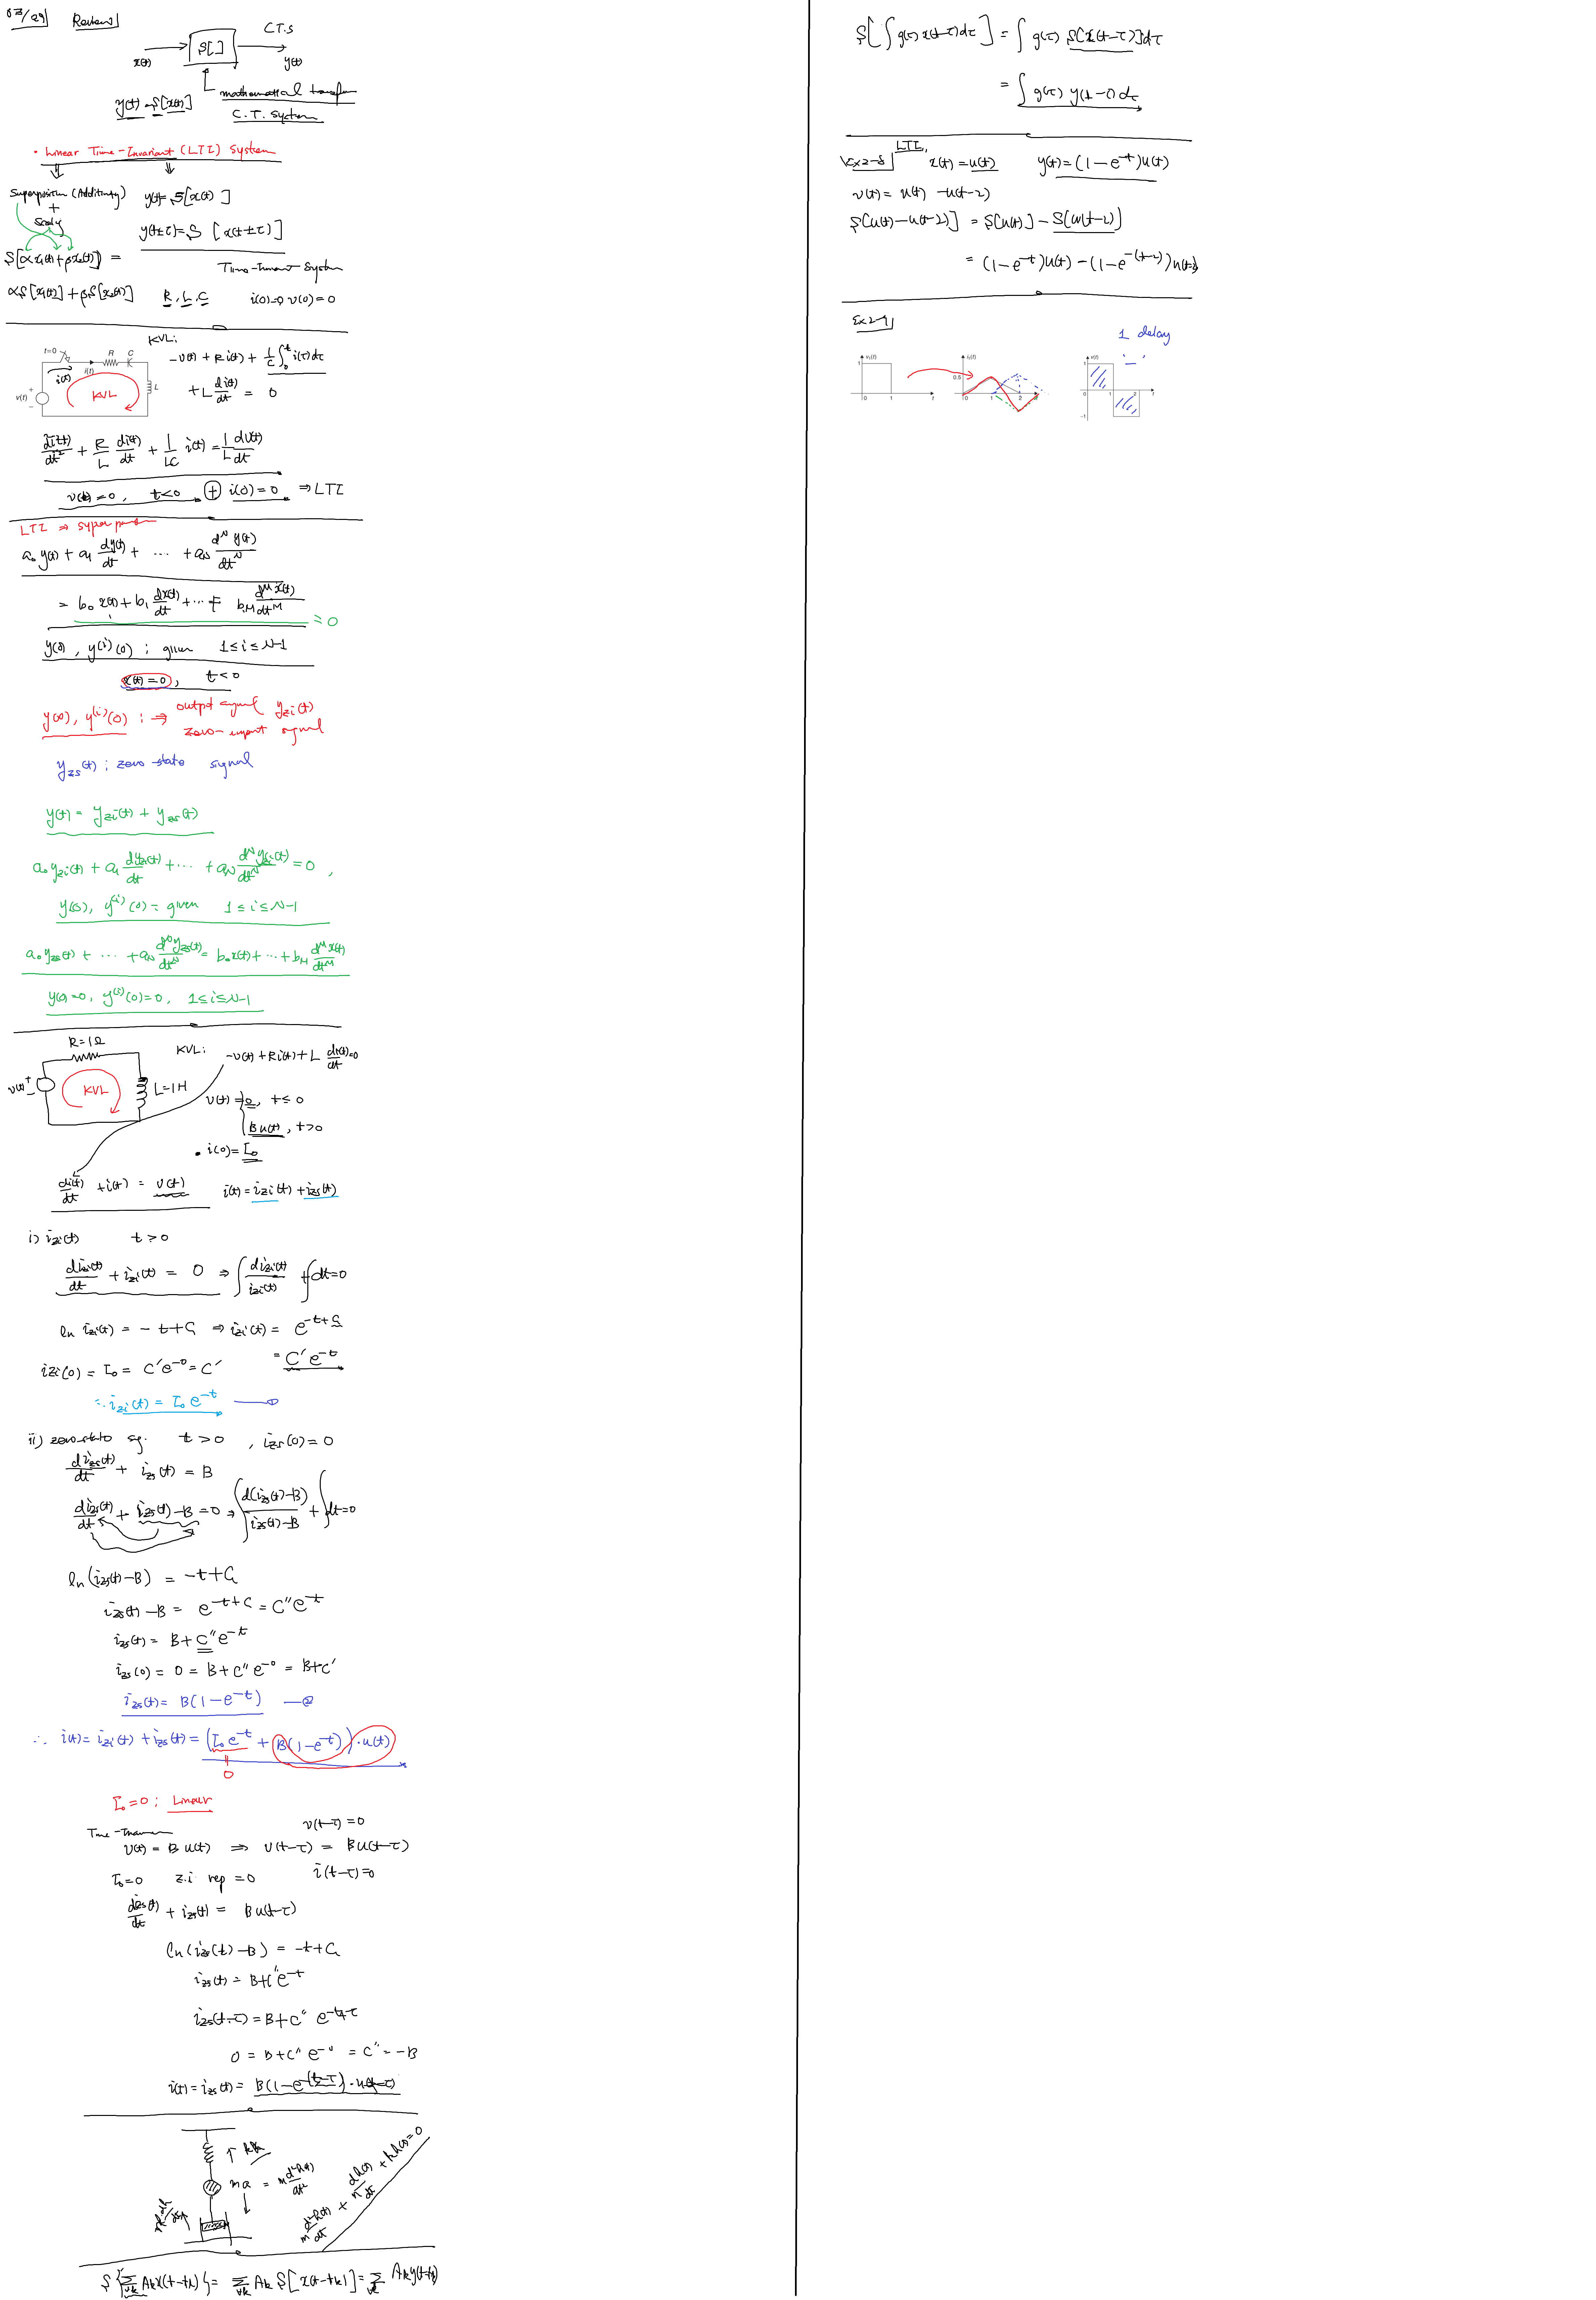 03/29 Review
C.T.S
x(t) S[ ] y(t)
y(t) = S[x(t)]
mathematical transform
C.T. System
• Linear Time-Invariant (LTI) System
Superposition (Additivity)
+
Scaling
y(t) = S[x(t)]
y(t±τ) = S[x(t±τ)]
S[αx₁(t)+βx₂(t)] =
Time-Invariant System
αS[x₁(t)] + βS[x₂(t)] R, L, C i(0)=0 v(0)=0
KVL:
t=0 R C
i(t) i(t) L
v(t) + −
KVL
-v(t) + Ri(t) + 1/C ∫₀ᵗ i(τ)dτ
+ L di(t)/dt = 0
d²i(t)/dt² + R/L di(t)/dt + 1/LC i(t) = 1/L dv(t)/dt
v(t)=0, t<0 ⊕ i(0)=0 ⇒ LTI
LTI ⇒
a₀y(t) + a₁ dy(t)/dt + ··· + a_N d^N y(t)/dt^N
= b₀x(t) + b₁ dx(t)/dt + ··· + b_M d^M x(t)/dt^M = 0
y(0), y^(i)(0) : given 1≤i≤N-1
x(t)=0, t<0
y(0), y^(i)(0) : ⇒ output signal y_zi(t)
zero- signal
y_zs(t) : zero state signal
y(t) = y_zi(t) + y_zs(t)
a₀y_zi(t) + a₁ dy_zi(t)/dt + ··· + a_N d^N y_zi(t)/dt^N = 0,
y(0), y^(i)(0) = given 1≤i≤N-1
a₀y_zs(t) + ··· + a_N d^N y_zs(t)/dt^N = b₀x(t) + ··· + b_M d^M x(t)/dt^M
y(0)=0, y^(i)(0)=0, 1≤i≤N-1
R=1Ω
v(t) + − KVL L=1H
KVL: -v(t) + Ri(t) + L di(t)/dt = 0
v(t) = 0, t≤0
Bu(t), t>0
• i(0) = I₀
di(t)/dt + i(t) = v(t) i(t) = i_zi(t) + i_zs(t)
i) i_zi(t) t>0
di_zi(t)/dt + i_zi(t) = 0 ⇒ ∫ di_zi(t)/i_zi(t) + ∫dt = 0
ln i_zi(t) = -t+C₁ ⇒ i_zi(t) = e^(-t+C₁)
= C'e^-t
i_zi(0) = I₀ = C'e^-0 = C'
∴ i_zi(t) = I₀e^-t —①
ii) zero-state sg. t>0, i_zs(0)=0
di_zs(t)/dt + i_zs(t) = B
di_zs(t)/dt + i_zs(t) - B = 0 ⇒ ∫ d(i_zs(t)-B)/(i_zs(t)-B) + ∫dt = 0
ln(i_zs(t)-B) = -t+C₁
i_zs(t)-B = e^(-t+C₁) = C''e^-t
i_zs(t) = B+C''e^-t
i_zs(0) = 0 = B+C''e^-0 = B+C'
i_zs(t) = B(1-e^-t) —②
∴ i(t) = i_zi(t) + i_zs(t) = (I₀e^-t + B(1-e^-t))·u(t)
0
I₀=0 : Linear
v(t-τ)=0
v(t) = Bu(t) ⇒ v(t-τ) = Bu(t-τ)
I₀=0 z.i rep =0 i(t-τ)=0
di_zs(t)/dt + i_zs(t) = Bu(t-τ)
ln(i_zs(t)-B) = -t+C₁
i_zs(t) = B+C''e^-t
i_zs(t-τ) = B+C''e^(-t+τ)
0 = B+C''e^-0 = C'' = -B
i(t) = i_zs(t) = B(1-e^-(t-τ))·u(t-τ)
ma = m d²h(t)/dt²
m d²h(t)/dt² + n dh(t)/dt + kh(t) = 0
S{Σ_∀k A_k x(t-t_k)} = Σ_∀k A_k S[x(t-t_k)] = Σ_∀k A_k y(t-t_k)
S[∫g(τ)x(t-τ)dτ] = ∫g(τ)S[x(t-τ)]dτ
= ∫g(τ)y(t-τ)dτ
Ex2-8 LTI, x(t)=u(t) y(t)=(1-e^-t)u(t)
v(t) = u(t) - u(t-2)
S[u(t)-u(t-2)] = S[u(t)] - S[u(t-2)]
= (1-e^-t)u(t) - (1-e^-(t-2))u(t-2)
Ex2-9
1 delay
'−'
v₁(t) 1 0 1 t
i₁(t) 0.5 0 1 2 t
v(t) 1 0 1 2 t −1